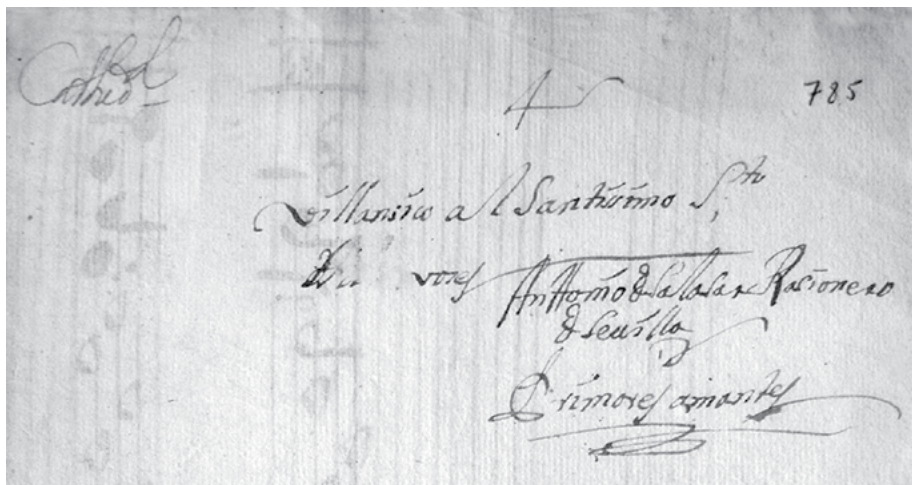 4
785
Villansico al Santissimo S.to
voses
Anttonio de Salasar Rasionero
de Sevilla
Primores amantes